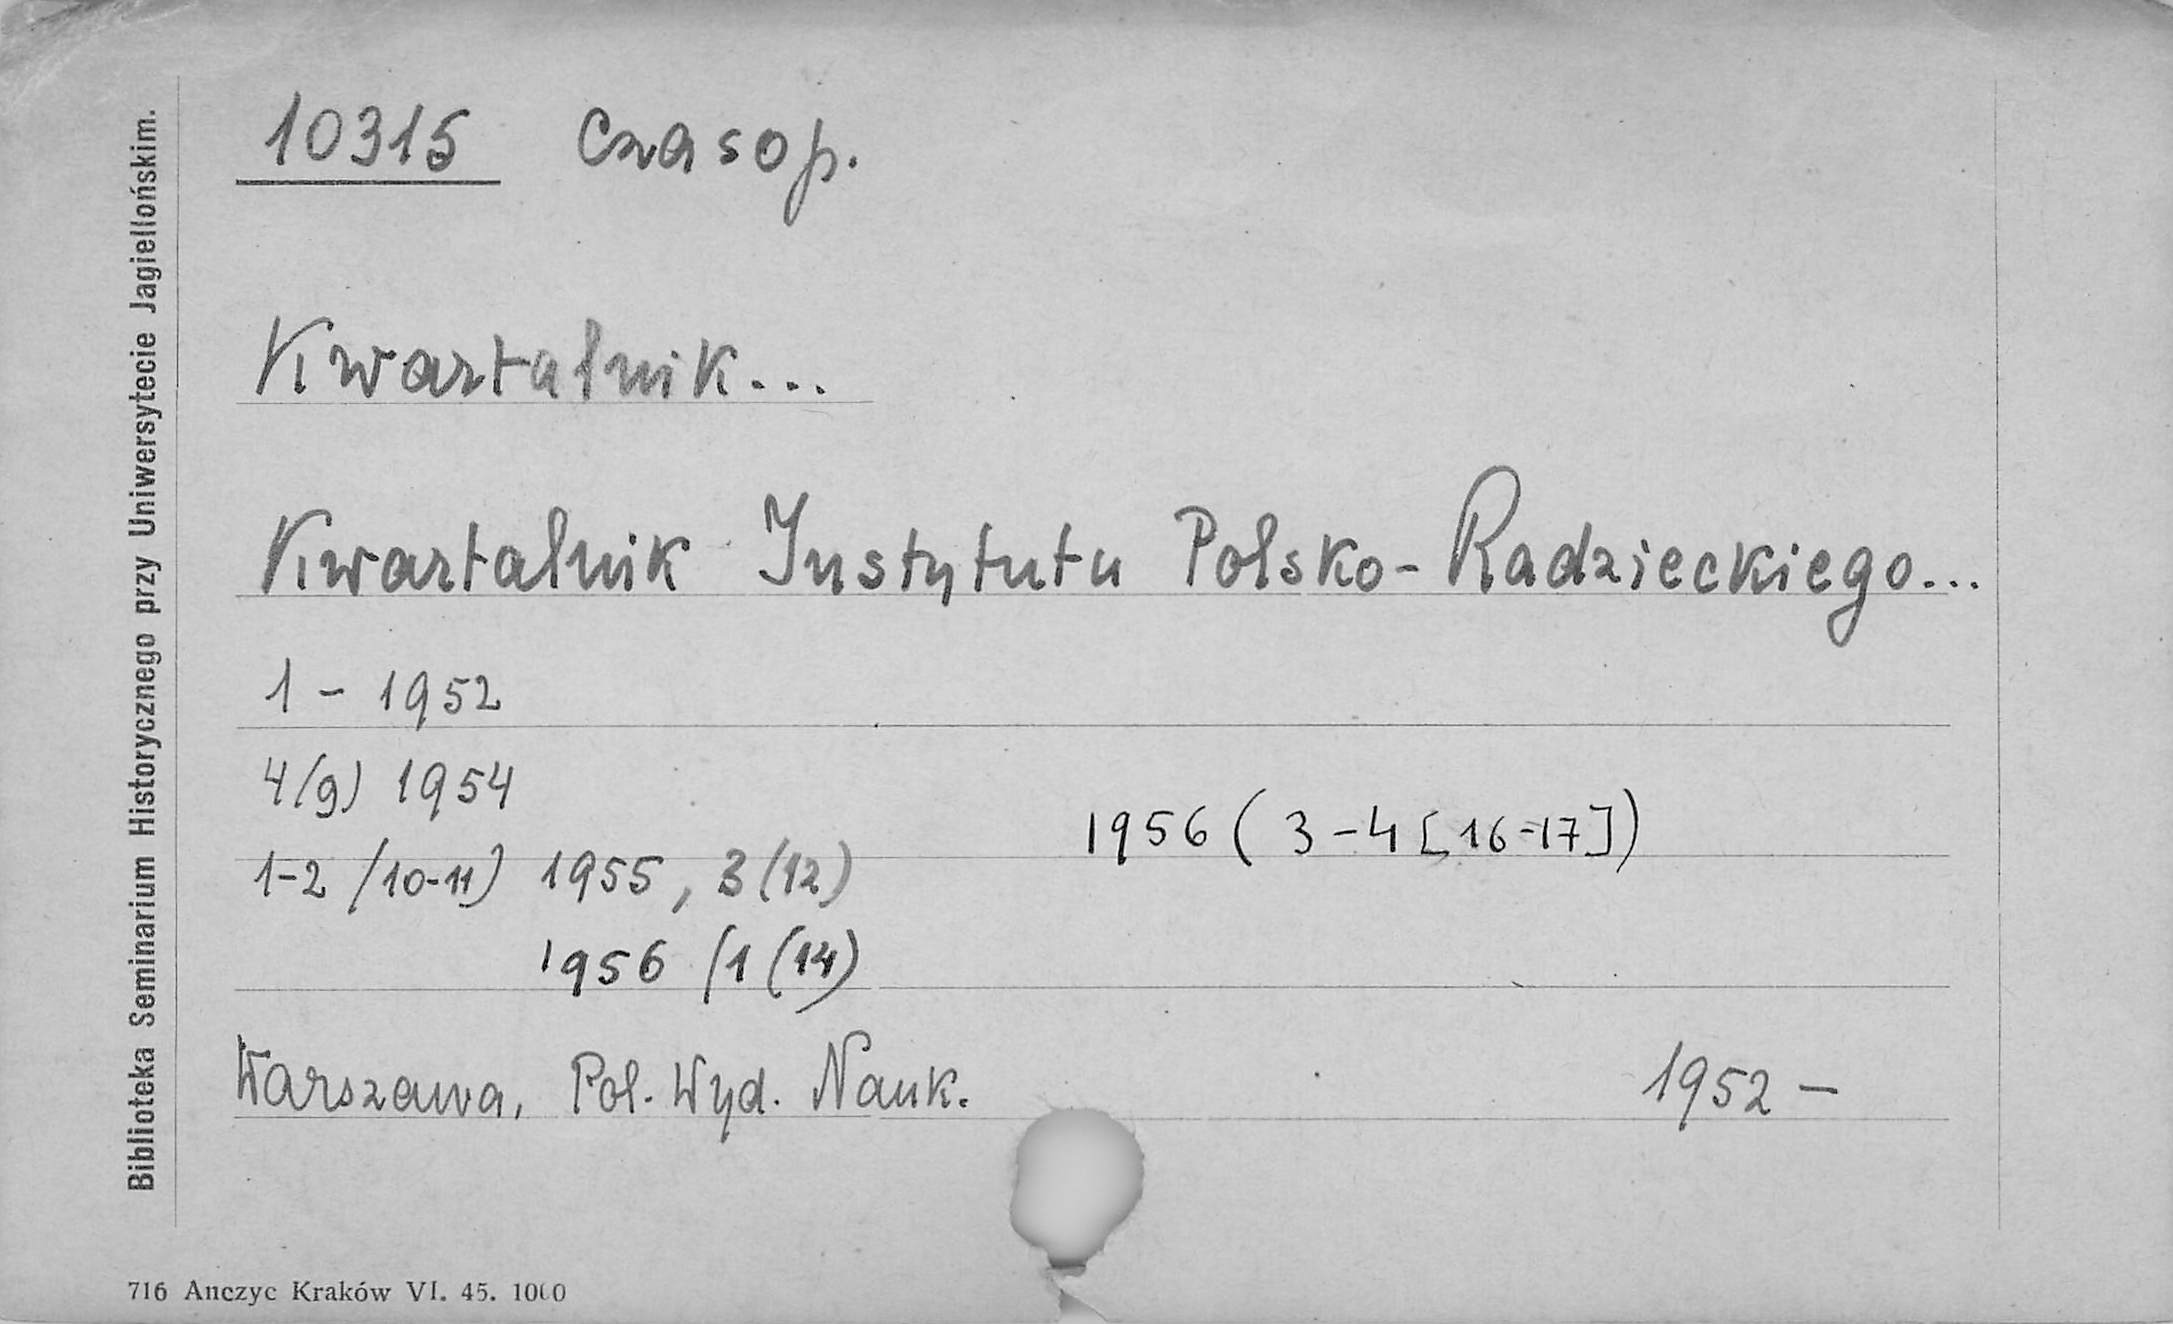 Biblioteka Seminarium Historycznego przy Uniwersytecie Jagiellońskim.
10315 Czasop.
Kwartalnik...
Kwartalnik Instytutu Polsko-Radzieckiego...
1 - 1952
4/9) 1954
1956 ( 3-4 [16-17])
1-2 /10-11) 1955, 3(12)
1956 /1 (14)
Warszawa, Pol. Wyd. Nauk. 1952 -
716 Anczyc Kraków VI. 45. 1000